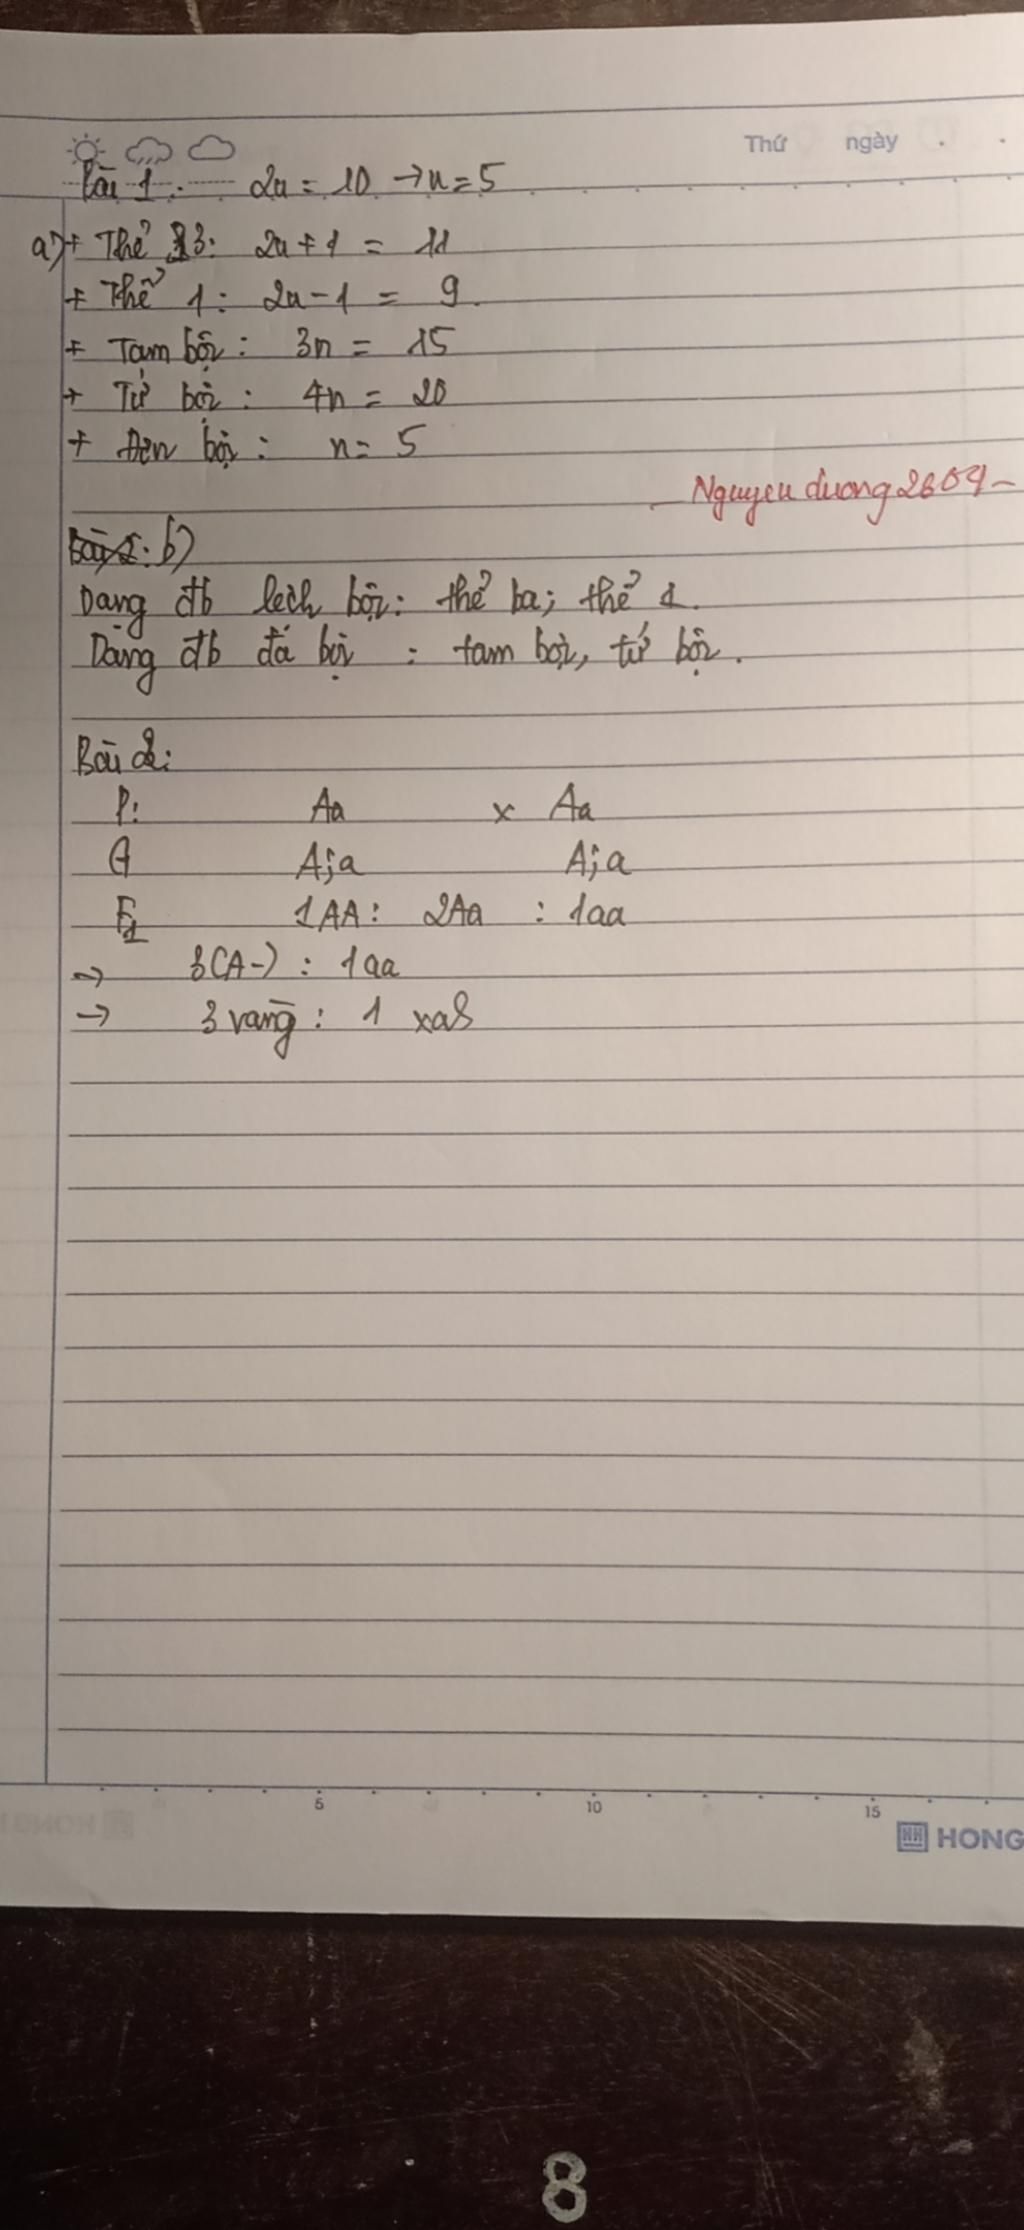 Thứ ngày
Bài 1: 2n = 10 → n = 5
a) + Thể 3: 2n + 1 = 11
+ Thể 1: 2n - 1 = 9.
+ Tam bội: 3n = 15
+ Tứ bội: 4n = 20
+ Đơn bội: n = 5
Nguyenduong2604
b)
Dạng đb lệch bội: thể ba; thể 1.
Dạng đb đa bội: tam bội, tứ bội.
Bài 2:
P: Aa x Aa
G A;a A;a
F1 1AA: 2Aa : 1aa
→ 3(A-) : 1aa
→ 3 vàng: 1 xah
5 10 15
HONG
8